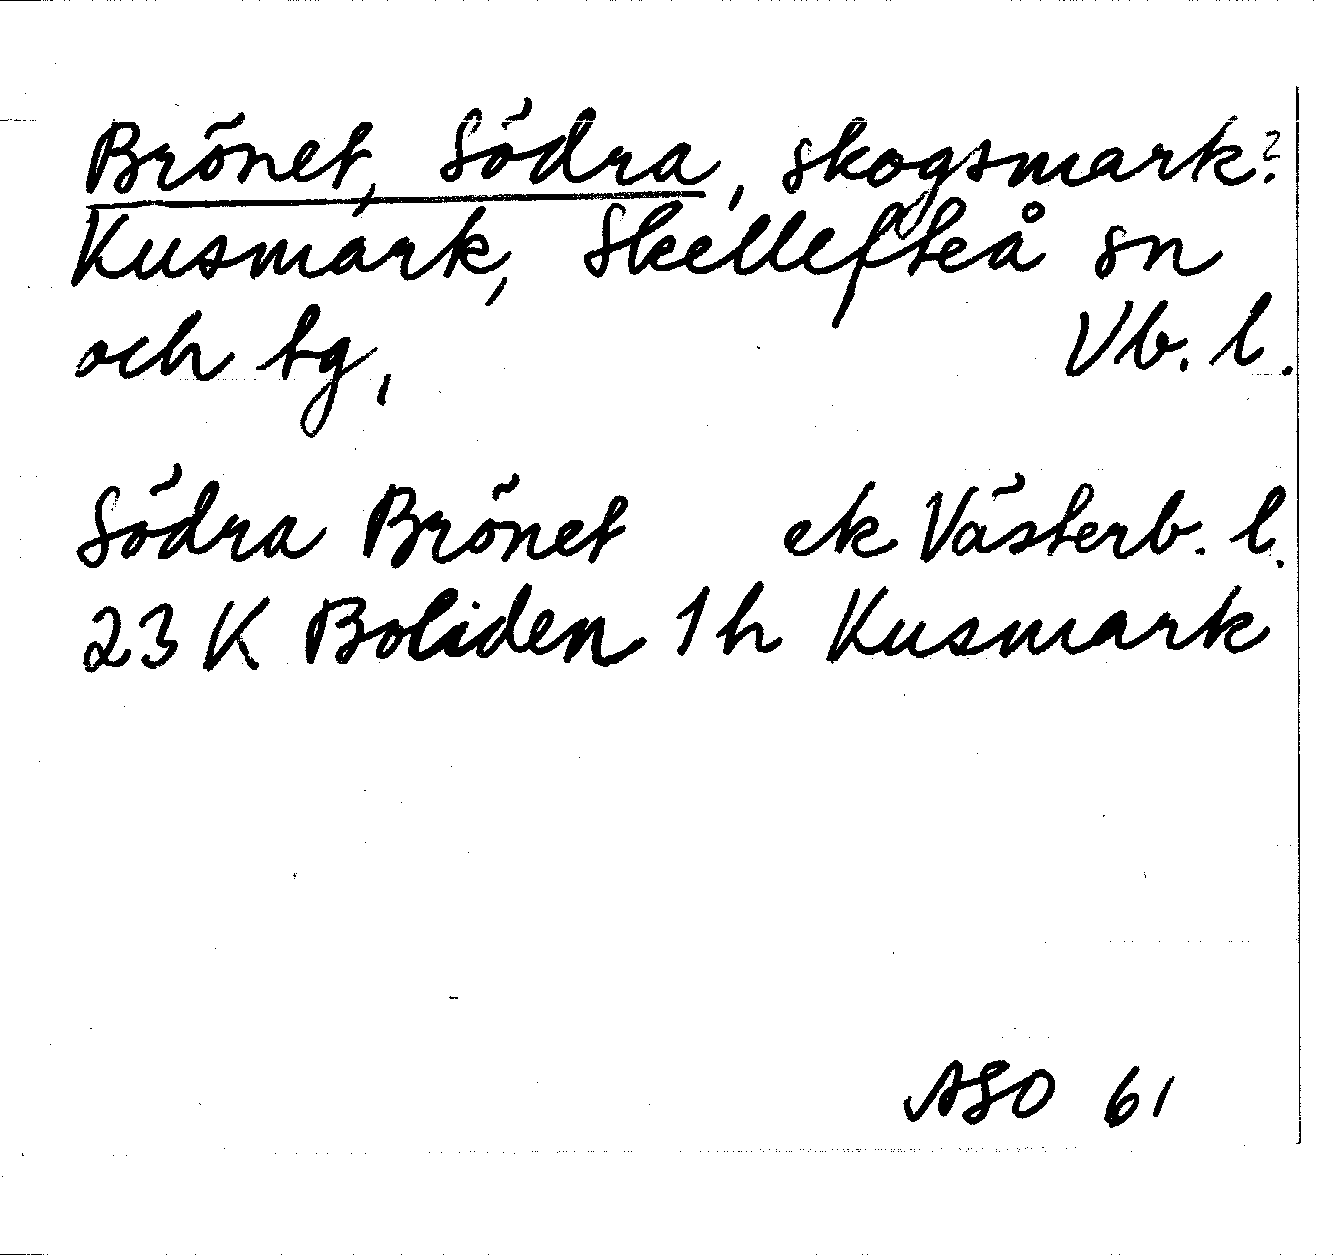 Brönet, Södra, skogsmark?
Kusmark, Skellefteå sn
och tg, Vb. l.
Södra Brönet ek Västerb. l.
23 K Boliden 1 h Kusmark
ASO 61